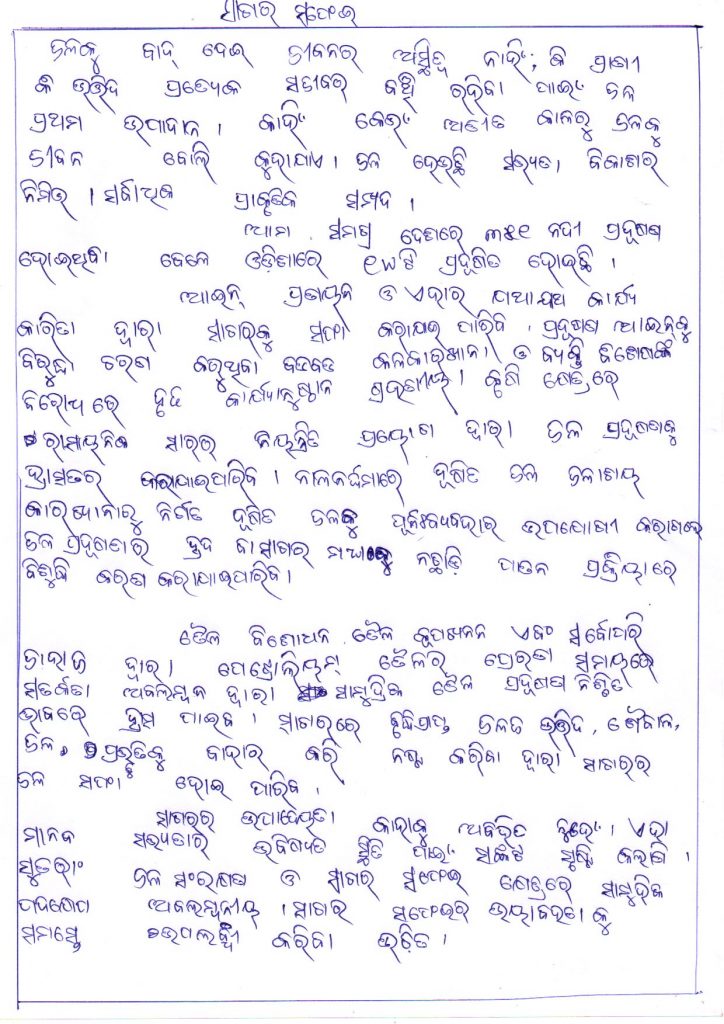 ସାଗର ସଫେଇ
ଜଳକୁ ବାଦ୍ ଦେଇ ଜୀବନର ଅସ୍ଥିତ୍ବ ନାହିଁ, କି ପ୍ରାଣୀ
କି ଉଦ୍ଭିଦ ପ୍ରତ୍ୟେକ ସଜୀବର ବଞ୍ଚି ରହିବା ପାଇଁ ଜଳ
ପ୍ରଥମ ଉପାଦାନ । କାହିଁ କେଉଁ ଅତୀତ କାଳରୁ ଜଳକୁ
ଜୀବନ ବୋଲି କୁହାଯାଏ । ଜଳ ହେଉଛି ସଭ୍ୟତା ବିକାଶର
ନିମିତ୍ତ । ସର୍ବାଧିକ ପ୍ରାକୃତିକ ସମ୍ପଦ ।
ଆମ ସମଗ୍ର ଦେଶରେ ୩୫୧ ନଦୀ ପ୍ରଦୂଷଣ
ହୋଇଥିବା ବେଳେ ଓଡ଼ିଶାରେ ୧୯ଟି ପ୍ରଦୂଷିତ ହୋଇଛି ।
ଆଇନ୍ ପ୍ରଣୟନ ଓ ଏହାର ଯଥାଯଥ କାର୍ଯ୍ୟ
କାରିତା ଦ୍ୱାରା ସାଗରକୁ ସଫା କରାଯାଇ ପାରିବ । ପ୍ରଦୂଷଣ ଆଇନକୁ
ବିରୁଦ୍ଧା ଚରଣ କରୁଥିବା ବଡବଡ କଳକାରଖାନା ଓ ବ୍ୟକ୍ତି ବିଶେଷଙ୍କ
ବିରୋଧରେ ଦୃଢ କାର୍ଯ୍ୟାନୁଷ୍ଠାନ ଗ୍ରହଣୀୟ । କୃଷି କ୍ଷେତ୍ରରେ
ରାସାୟନିକ ସାରର ନିୟନ୍ତ୍ରିତ ପ୍ରୟୋଗ ଦ୍ୱାରା ଜଳ ପ୍ରଦୂଷଣକୁ
ହ୍ରାସତର କରାଯାଇପାରିବ । ନାଳନର୍ଦ୍ଦମାରେ ଦୂଷିତ ଜଳ ଜଳାଶୟ
କାରଖାନାରୁ ନିର୍ଗତ ଦୂଷିତ ଜଳକୁ ପୂନଃବ୍ୟବହାର ଉପଯୋଗୀ କରାଗଲେ
ଜଳ ପ୍ରଦୂଷଣର ହ୍ରଦ ବା ସାଗର ମଧ୍ୟକୁ ନଛାଡ଼ି ପାତନ ପ୍ରକ୍ରିୟାରେ
ବିଶୁଦ୍ଧି କରଣ କରାଯାଇପାରିବ ।
ତୈଳ ବିଶୋଧନ ତୈଳ କୂପଖନନ ଏବଂ ସର୍ବୋପରି
ଜାହାଜ ଦ୍ୱାରା ପେଟ୍ରୋଲିୟମ୍ ତୈଳର ପ୍ରେରଣ ସମୟରେ
ସତର୍କତା ଅବଲମ୍ବନ ଦ୍ୱାରା ସାମୁଦ୍ରିକ ତୈଳ ପ୍ରଦୂଷଣ ନିଶ୍ଚିତ
ଭାବରେ ହ୍ରାସ ପାଇବ । ସାଗରରେ ବୃଦ୍ଧିପ୍ରାପ୍ତ ଜଳଜ ଉଦ୍ଭିଦ, ଶୈବାଳ,
ଜଳ, ପ୍ରଭୃତିକୁ ବାହାର କରି ନଷ୍ଟ କରିବା ଦ୍ୱାରା ସାଗରର
ଜଳ ସଫା ହୋଇ ପାରିବ ।
ସାଗରର ଉପାଦେୟତା କାହାକୁ ଅବିଦିତ ନୁହେଁ । ଏହା
ମାନବ ସଭ୍ୟତାର ଭବିଷ୍ୟତ ସ୍ଥିତି ପାଇଁ ସଙ୍କଟ ସୃଷ୍ଟି କଲାଣି ।
ସୁତରାଂ ଜଳ ସଂରକ୍ଷଣ ଓ ସାଗର ସଫେଇ କ୍ଷେତ୍ରରେ ସାମୁଦ୍ରିକ
ପଦକ୍ଷେପ ଅବଲମ୍ବନୀୟ । ସାଗର ସଫେଇର ଭୟାବହତା କୁ
ସମସ୍ତେ ଉପଲବ୍ଧୀ କରିବା ଉଚିତ ।